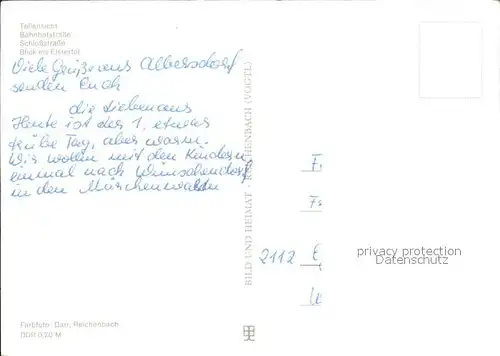 Teilansicht
Bahnhofstraße
Schloßstraße
Blick ins Elstertal
Viele Grüße aus Albersdorf
senden Euch
die Liebenaus
Heute ist der 1. etwas
trübe Tag, aber warm.
Wir wollen mit den Kindern
einmal nach Wünschendorf
in den Märchenwald
BILD UND HEIMAT REICHENBACH (VOGTL)
F
F
2112 E
privacy protection
Datenschutz
Farbfoto: Dan, Reichenbach
DDR 0,20 M